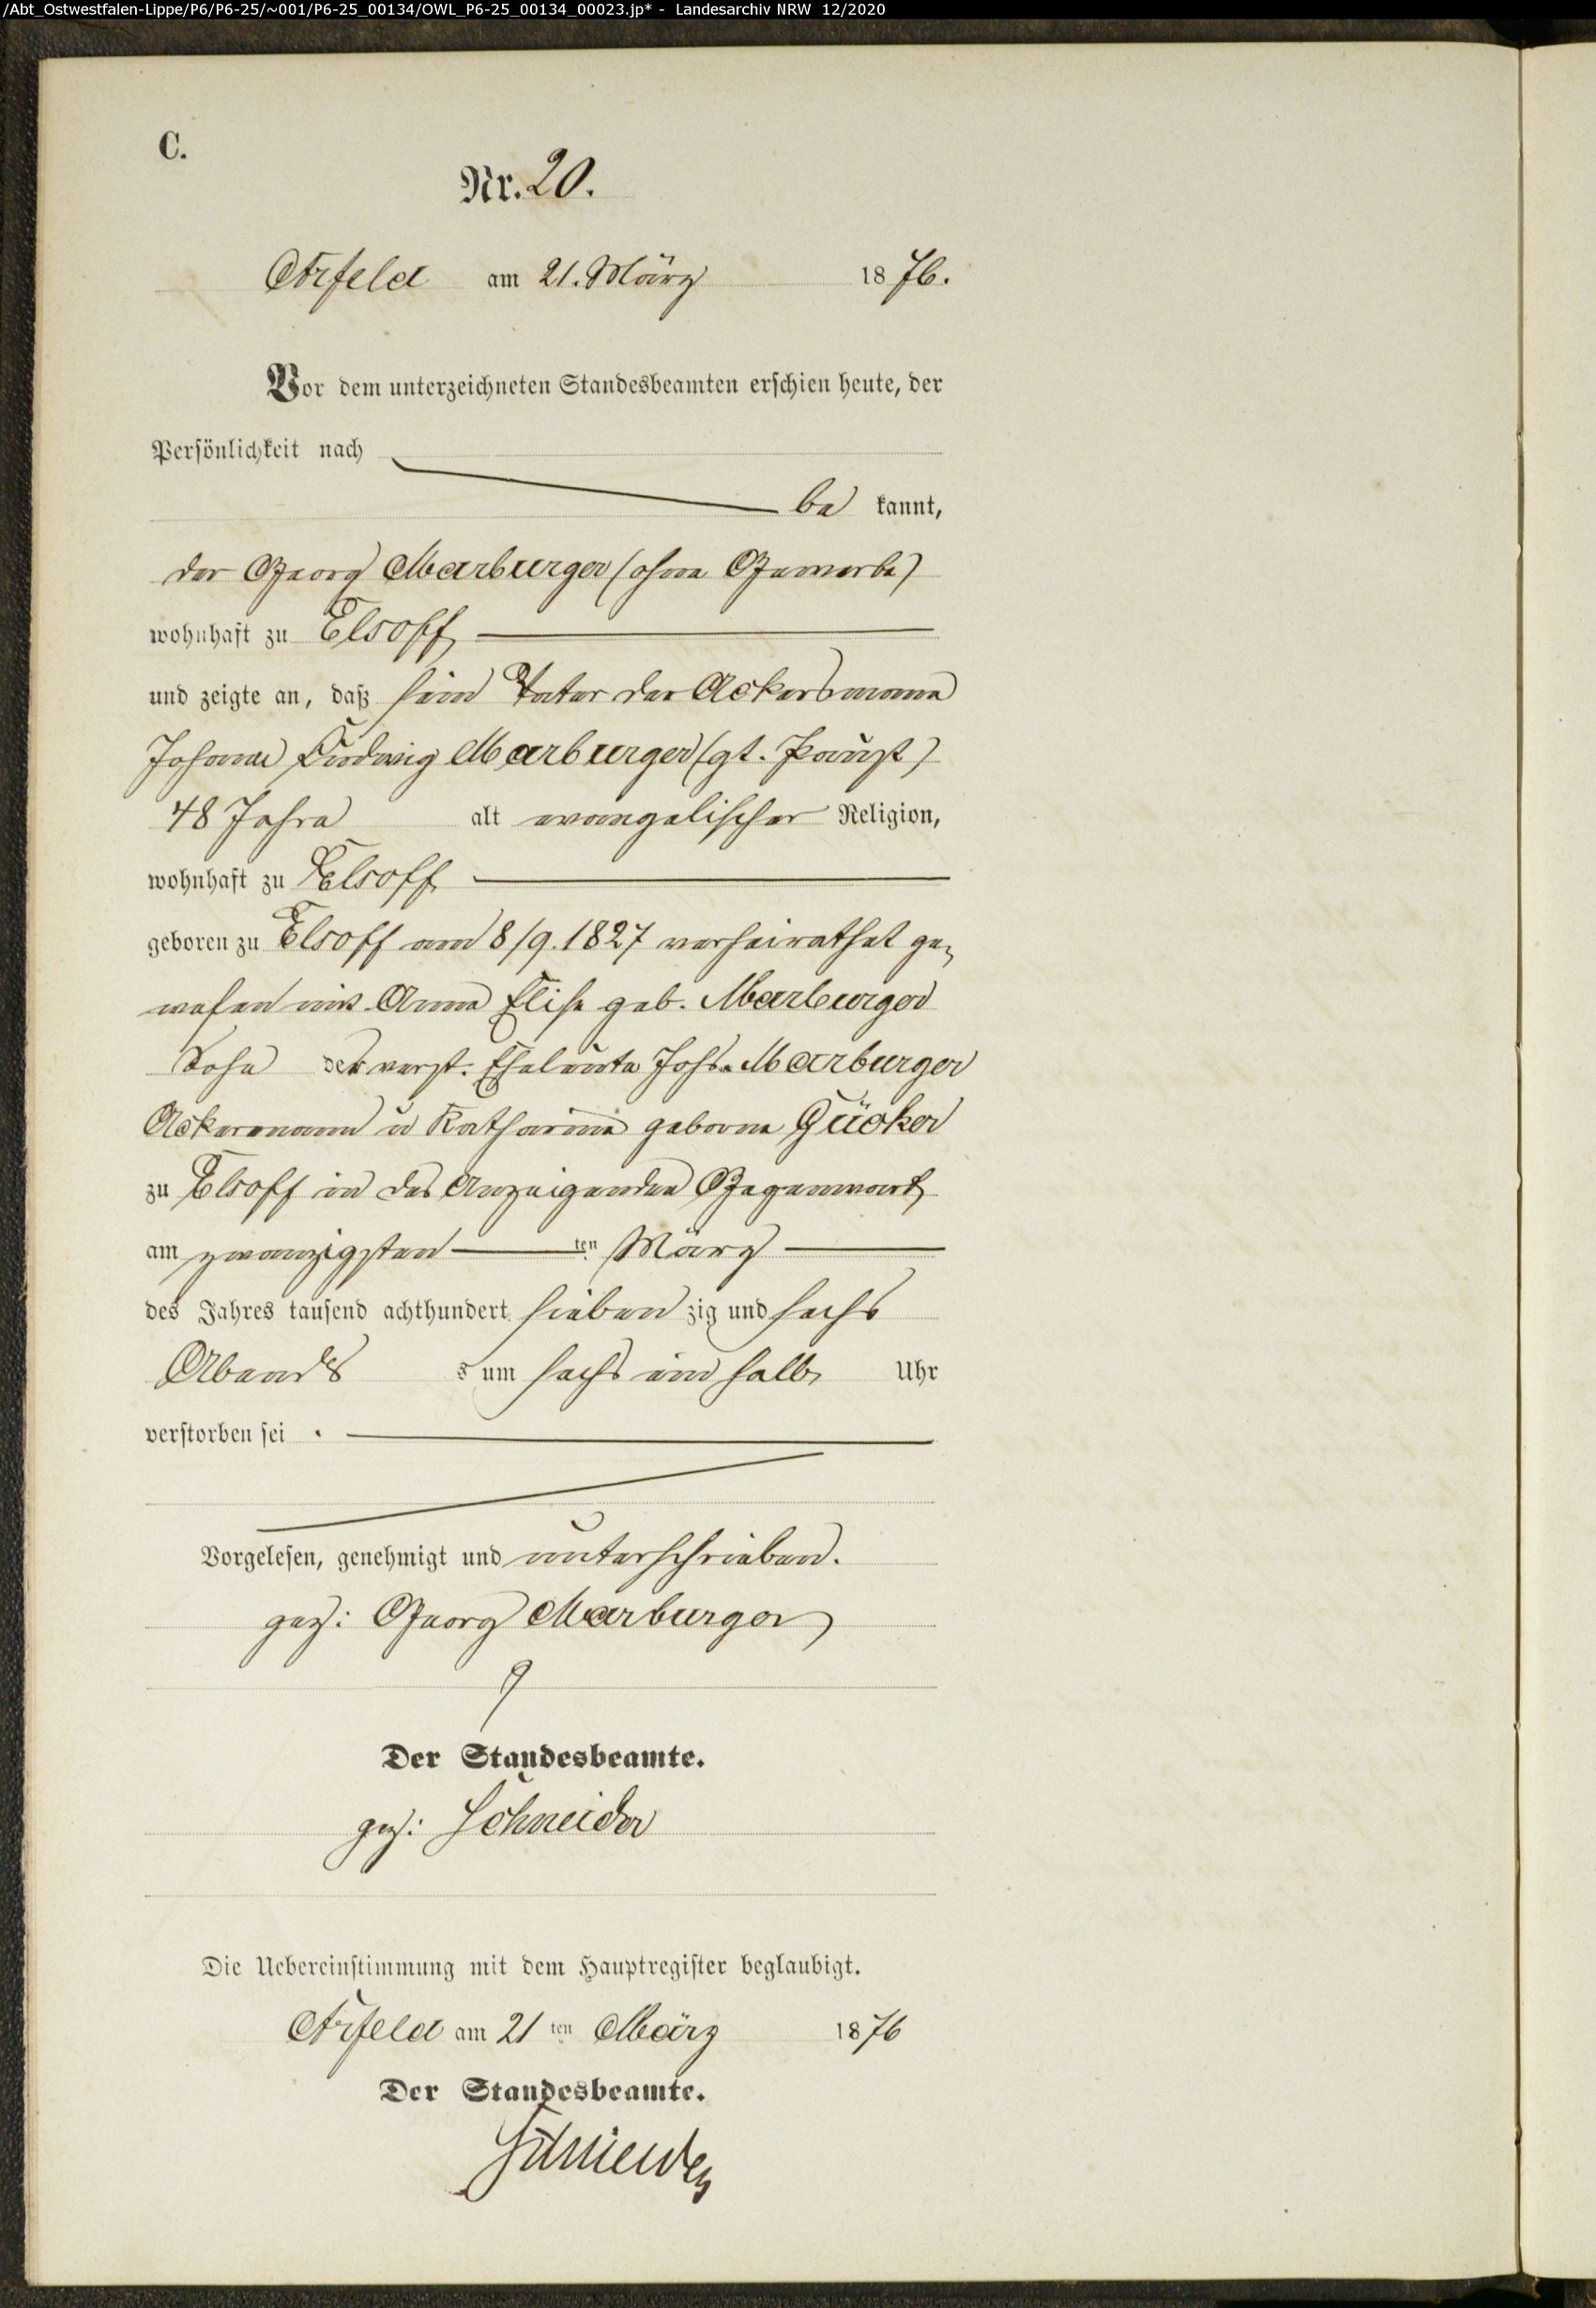 /Abt_Ostwestfalen-Lippe/P6/P6-25/~001/P6-25_00134/OWL_P6-25_00134_00023.jp* - Landesarchiv NRW 12/2020
C.
Nr. 20.
Arfeld am 21. März 1876.
Vor dem unterzeichneten Standesbeamten erschien heute, der
Persönlichkeit nach
be kannt,
der Georg Marburger (ohne Gewerbe)
wohnhaft zu Elsoff
und zeigte an, daß sein Vater der Ackersmann
Johann Ludwig Marburger (gt. )
48 Jahre alt evangelischer Religion,
wohnhaft zu Elsoff
geboren zu Elsoff am 8/9. 1827 verheirathet ge-
wesen mit Anna Elise geb. Marburger
Sohn der verst. Eheleute Johs. Marburger
Ackermann u Katharine geborne Gücker
zu Elsoff in des Anzeigenden Gegenwart
am zwanzigsten ten März
des Jahres tausend achthundert sieben zig und sechs
Abends s um sechs ein halb Uhr
verstorben sei .
Vorgelesen, genehmigt und unterschrieben.
gez: Georg Marburger
Der Standesbeamte.
gez: Schneider
Die Uebereinstimmung mit dem Hauptregister beglaubigt.
Arfeld am 21 ten März 1876
Der Standesbeamte.
Schneider